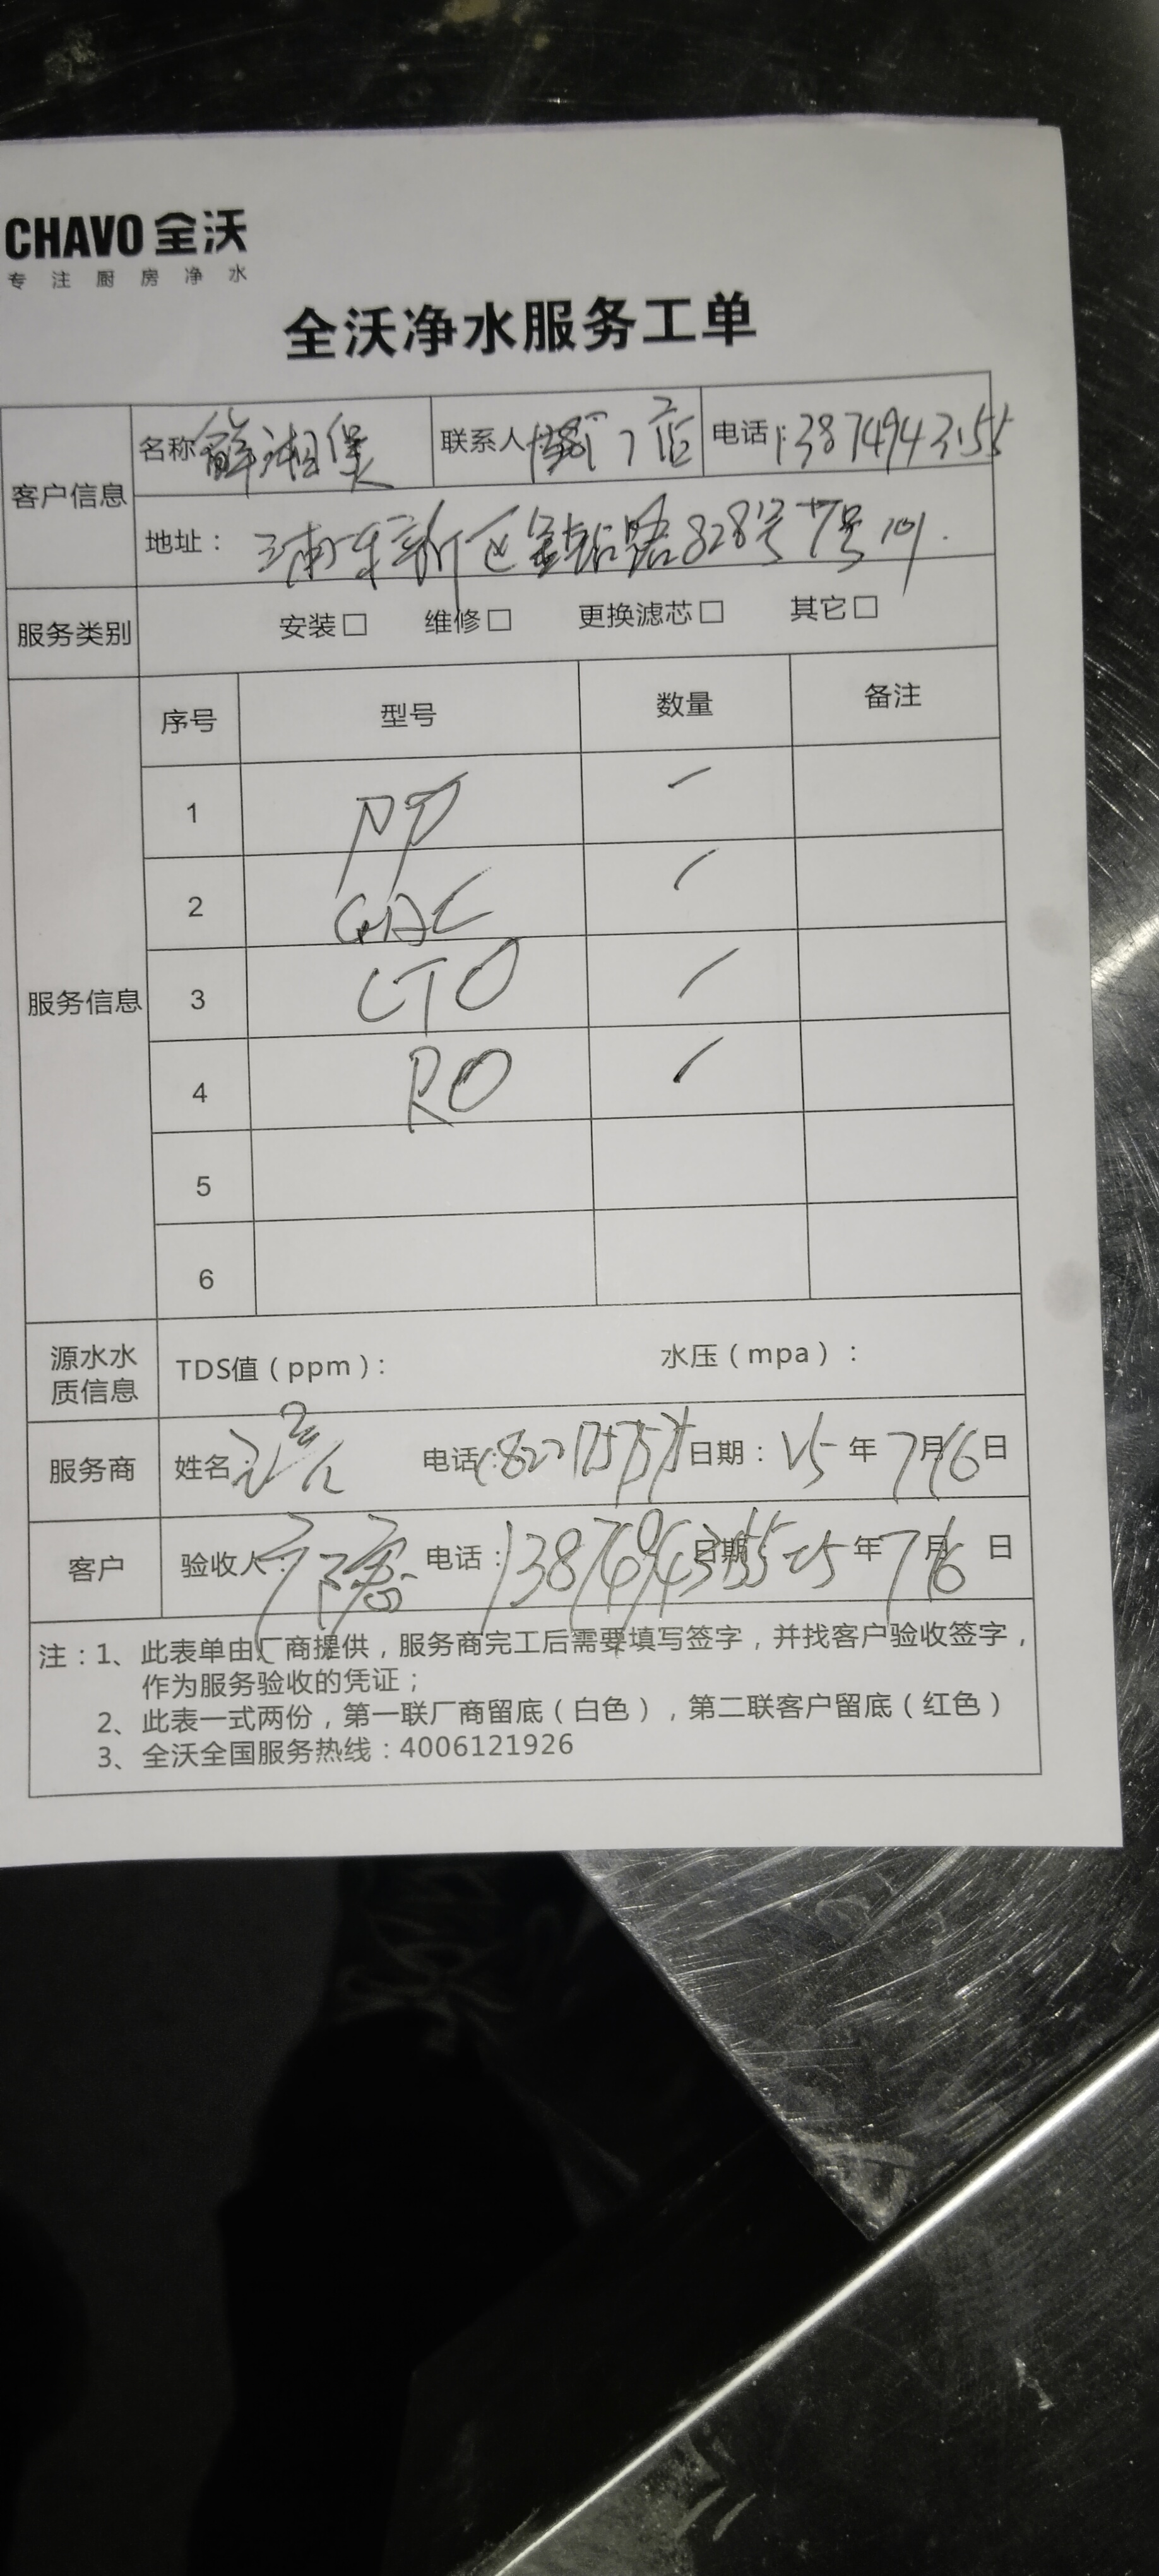 CHAVO 全沃
专注厨房净水
全沃净水服务工单
客户信息
名称 鲜湘煲 联系人 门店 电话: 13874943155
地址: 浦东新区金钻路828号 号
服务类别 安装□ 维修□ 更换滤芯□ 其它□
服务信息
序号 型号 数量 备注
1 PP 一
2 GAC 一
3 CTO 一
4 RO 一
5
6
源水水质信息 TDS值(ppm): 水压(mpa):
服务商 姓名: 电话: 日期: 25年7月16日
客户 验收人: 电话: 13874943155 日期 25年7月16日
注:1、此表单由厂商提供,服务商完工后需要填写签字,并找客户验收签字,
作为服务验收的凭证;
2、此表一式两份,第一联厂商留底(白色),第二联客户留底(红色)
3、全沃全国服务热线:4006121926